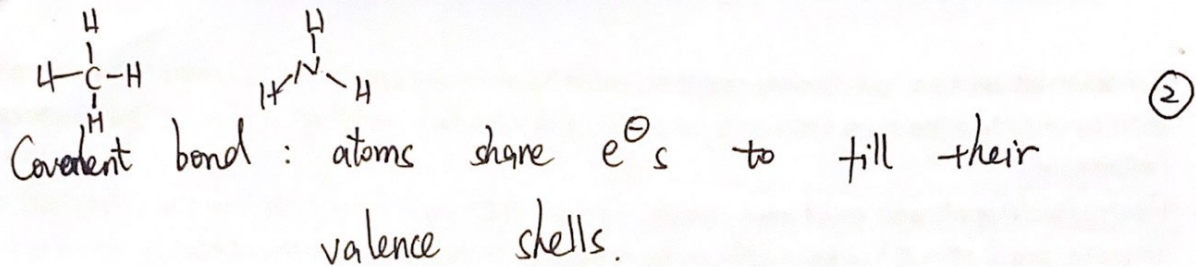 H H
H-C-H N
H H H
②
Covalent bond : atoms share e⊖s to fill their
valence shells.